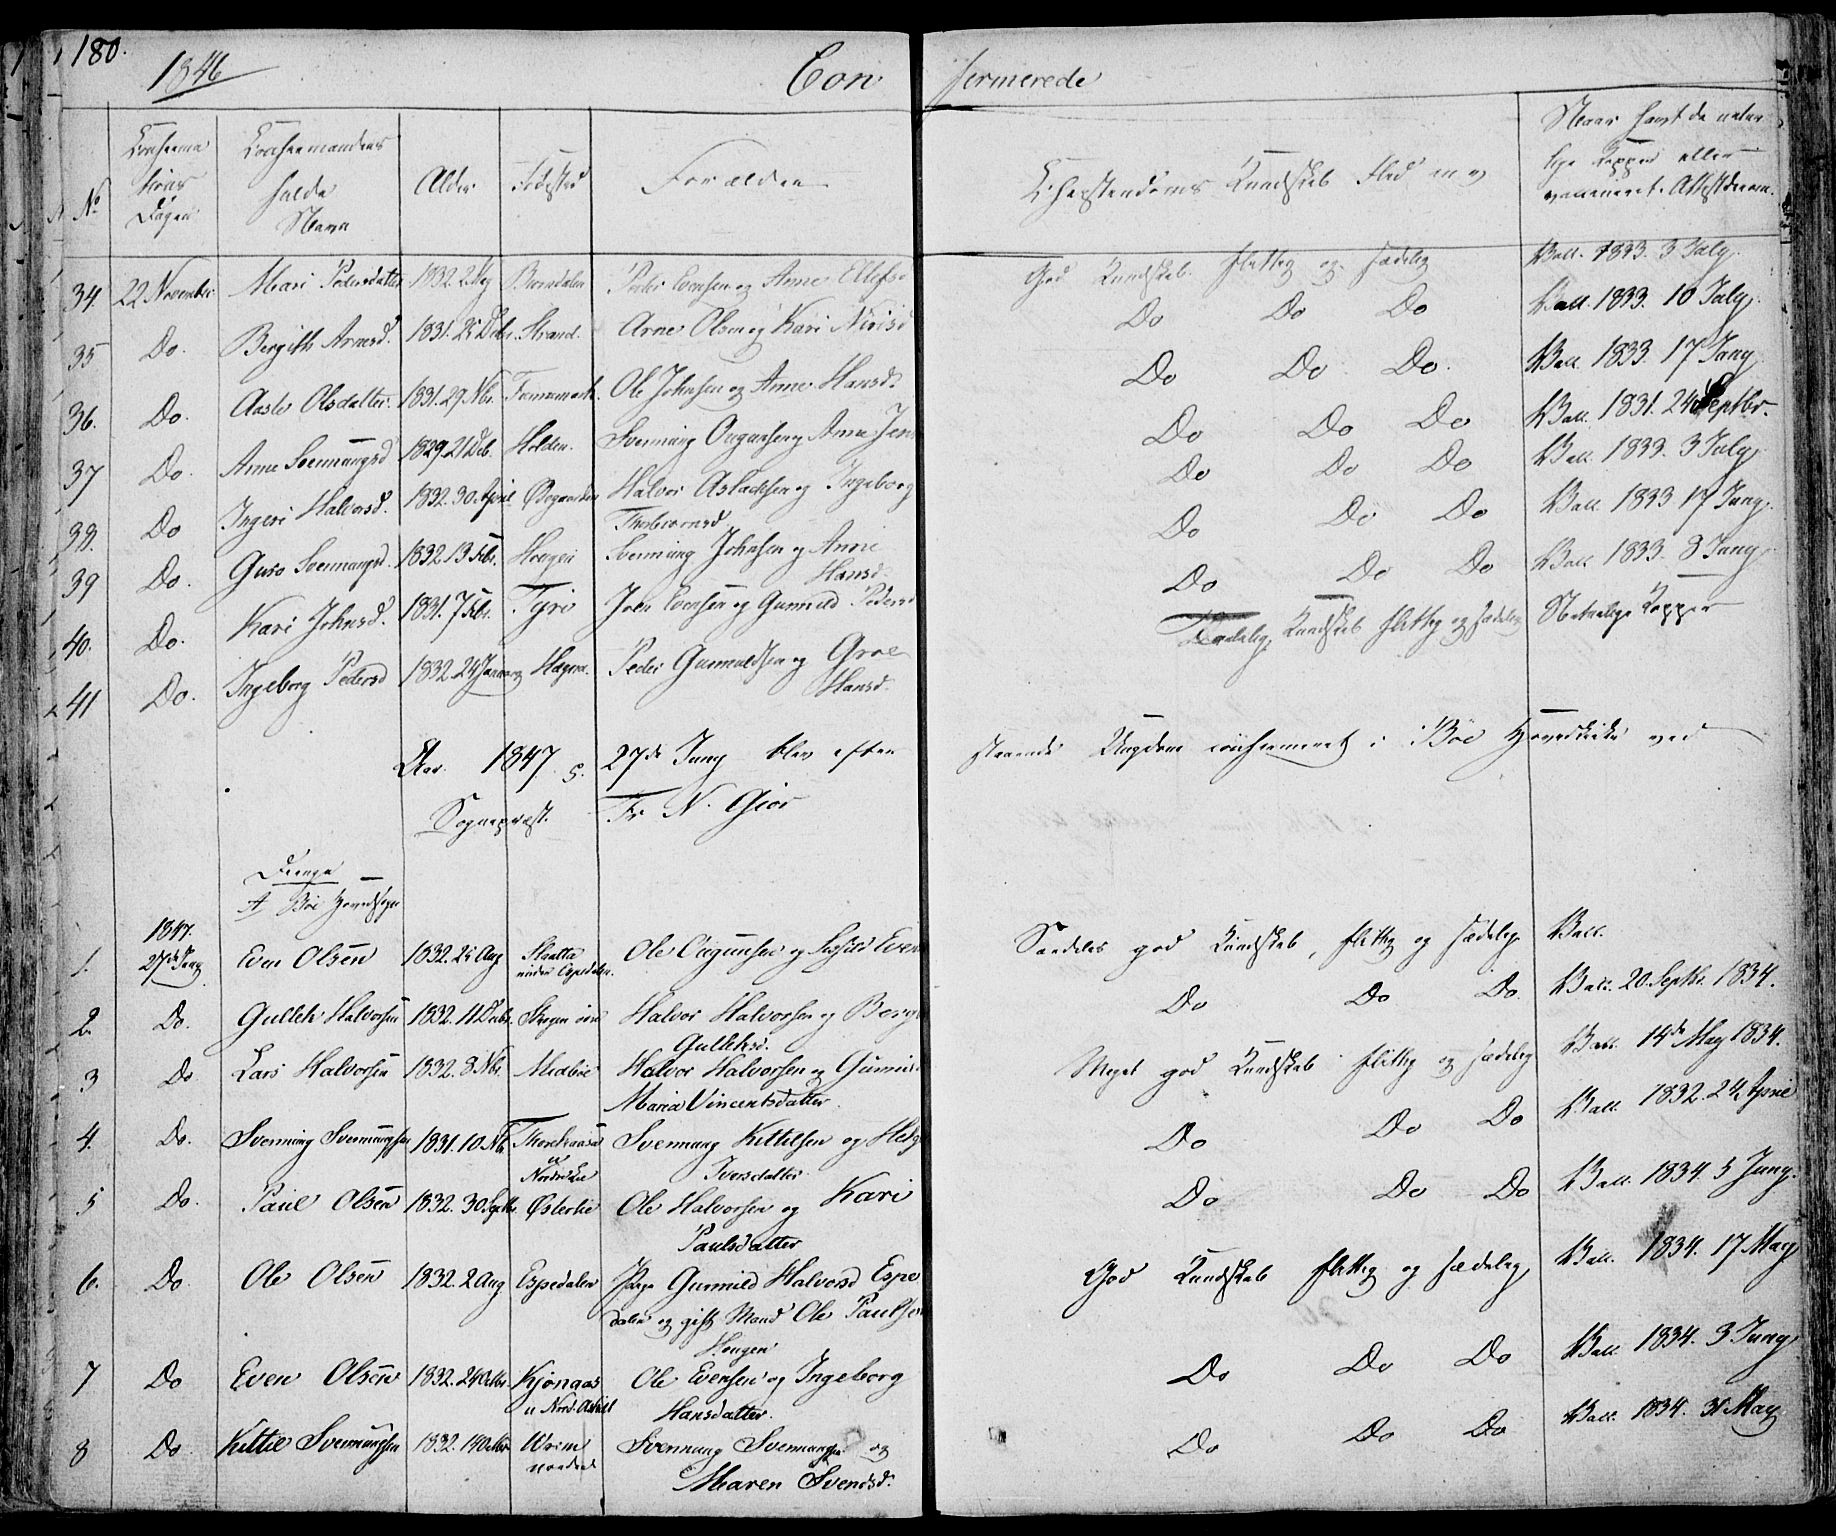 180.
1846
Confirmerede
No
Confirma
tions
Dagen
Confirmandens
fulde
Navn
Alder
Fødested
Forældre
Christendoms Kundskab Flid
Naar havt de natur
lige Kopper eller
vaccineret. Attest derom.
34. 22 November Mari Pedersdatter 1832. 2 May Peder Evensen og Anne Ellefsd God Kundskab flittig og sædelig Vacc. 1833. 3 July
35 Do. Bergith Arnesd. 1831. 25 Debr. Strand. Arne Olsen og Kari Do Do Do Vacc. 1833. 10 July
36. Do. Aaste Olsdatter. 1831. 29 Nbr. Ole Johnsen og Anne Hansd. Do Do Do. Vacc. 1833. 17 Juny
37 Do. Anne Svennungsd 1829. 21 Deb. Holden. Svennung og Anne Do Do Do Vacc. 1831. 24 Septbr.
38. Do Ingeri Halvorsd. 1832. 30 April Halvor Aslacksen og Ingeborg
Thorbiørnsd Do Do Do Vacc. 1833. 3 July
39 Do. Guro Svennungsd. 1832. 13 Febr. Haugen Svennung Johnsen og Anne
Hansd. Do Do Do Vacc. 1833 17 Juny
40. Do. Kari Johnsd. 1831. 7 Febr. Tyri John Evensen og Gunnild Pedersd Do Do Do Vacc. 1833. 3 Juny
41 Do. Ingeborg Pedersd 1832. 24 January Peder Gunnuldsen og Groe
Hansd. Kundskab flittig og sædelig Naturlige Kopper
Aar 1847. s. 27de Juny blev efter
staaende Ungdom confirmeret i Bøe Hovedkirke ved
Sognepræst. Fr N. Gjør
Drenge
A Bøe Hovedsogn
1. 1847.
27de Juny Even Olsen 1832. 25 Aug Slaatta
under Espedalen Ole og Even Særdeles god Kundskab, flittig og sædelig Vacc.
2. Do. Gullek Halvorsen 1832. 11 Debr. Skogen Halvor Halvorsen og Berg
Gulleksd. Do Do Do. Vacc. 20. Septbr. 1834.
3 Do Lars Halvorsen 1832. 8 Nbr. Halvor Halvorsen og Gunnild
Maria Vincentsdatter. Meget god Kundskab flittig og sædelig Vacc. 14de May 1834.
4. Do. Svennung Svennungsen 1831. 10 Nbr. Svennung Kittilsen og Helge
Iversdatter Do Do Do Vacc. 1832. 24 April
5 Do. Paul Olsen 1832. 30 Septbr. Østerlie Ole Halvorsen og Kari
Paulsdatter Do Do Do Vacc. 1834. 5 Juny.
6. Do Ole Olsen 1832. 2 Aug Espedalen Pige Gunnild Halvorsd Espe
dalen og gift Mand Ole Paulsen
Haugen God Kundskab flittig og sædelig Vacc. 1834. 17 May
7 Do Even Olsen 1832. 24 Octbr. Kjønaas
u Nord. Ole Evensen og Ingeborg
Hansdatter. Do Do Do Vacc. 1834. 3 Juny
8 Do Kittil Svennungsen 1832. 14 Octbr
nordre Svennung Svennungsen og
Maren Svendsd. Do Do Do Vacc. 1834. 31 May